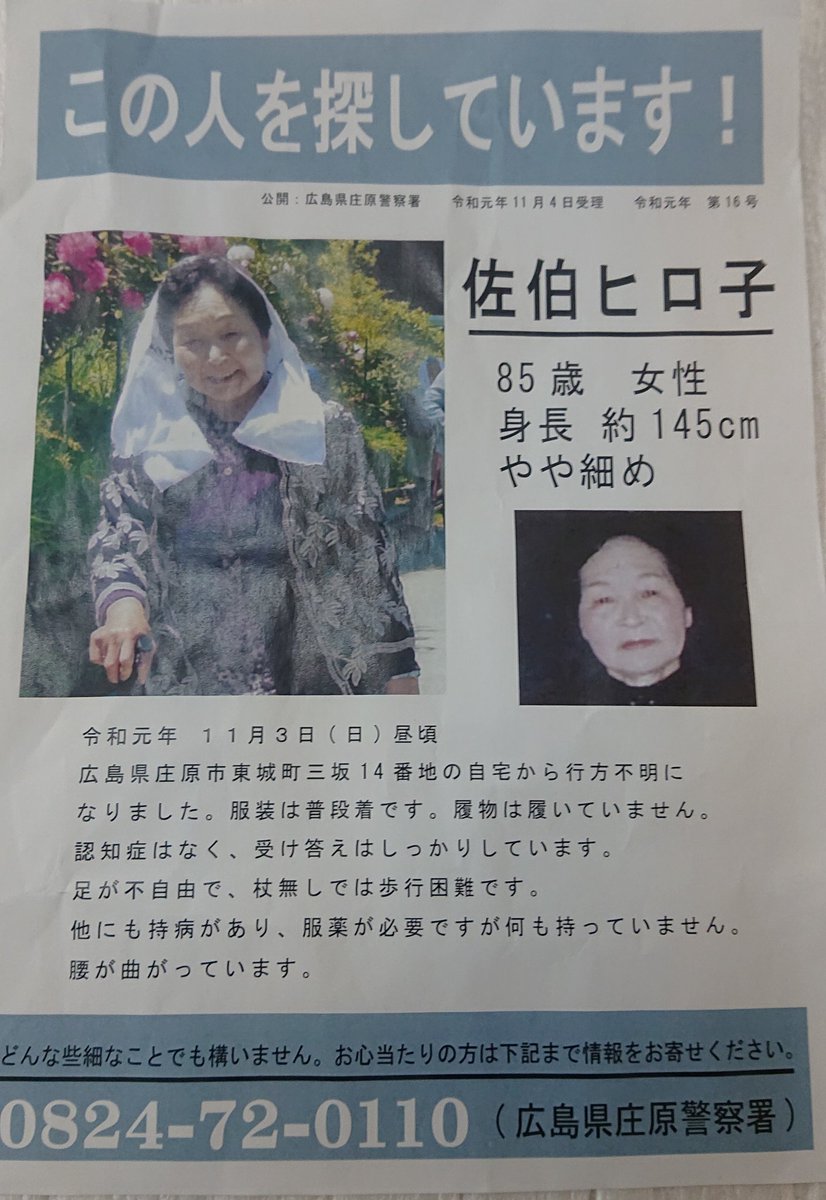 この人を探しています！
公開：広島県庄原警察署　令和元年11月4日受理　令和元年　第16号
佐伯ヒロ子
85歳　女性
身長　約145cm
やや細め
令和元年　１１月３日（日）昼頃
広島県庄原市東城町三坂14番地の自宅から行方不明に
なりました。服装は普段着です。履物は履いていません。
認知症はなく、受け答えはしっかりしています。
足が不自由で、杖無しでは歩行困難です。
他にも持病があり、服薬が必要ですが何も持っていません。
腰が曲がっています。
どんな些細なことでも構いません。お心当たりの方は下記まで情報をお寄せください。
0824-72-0110（広島県庄原警察署）